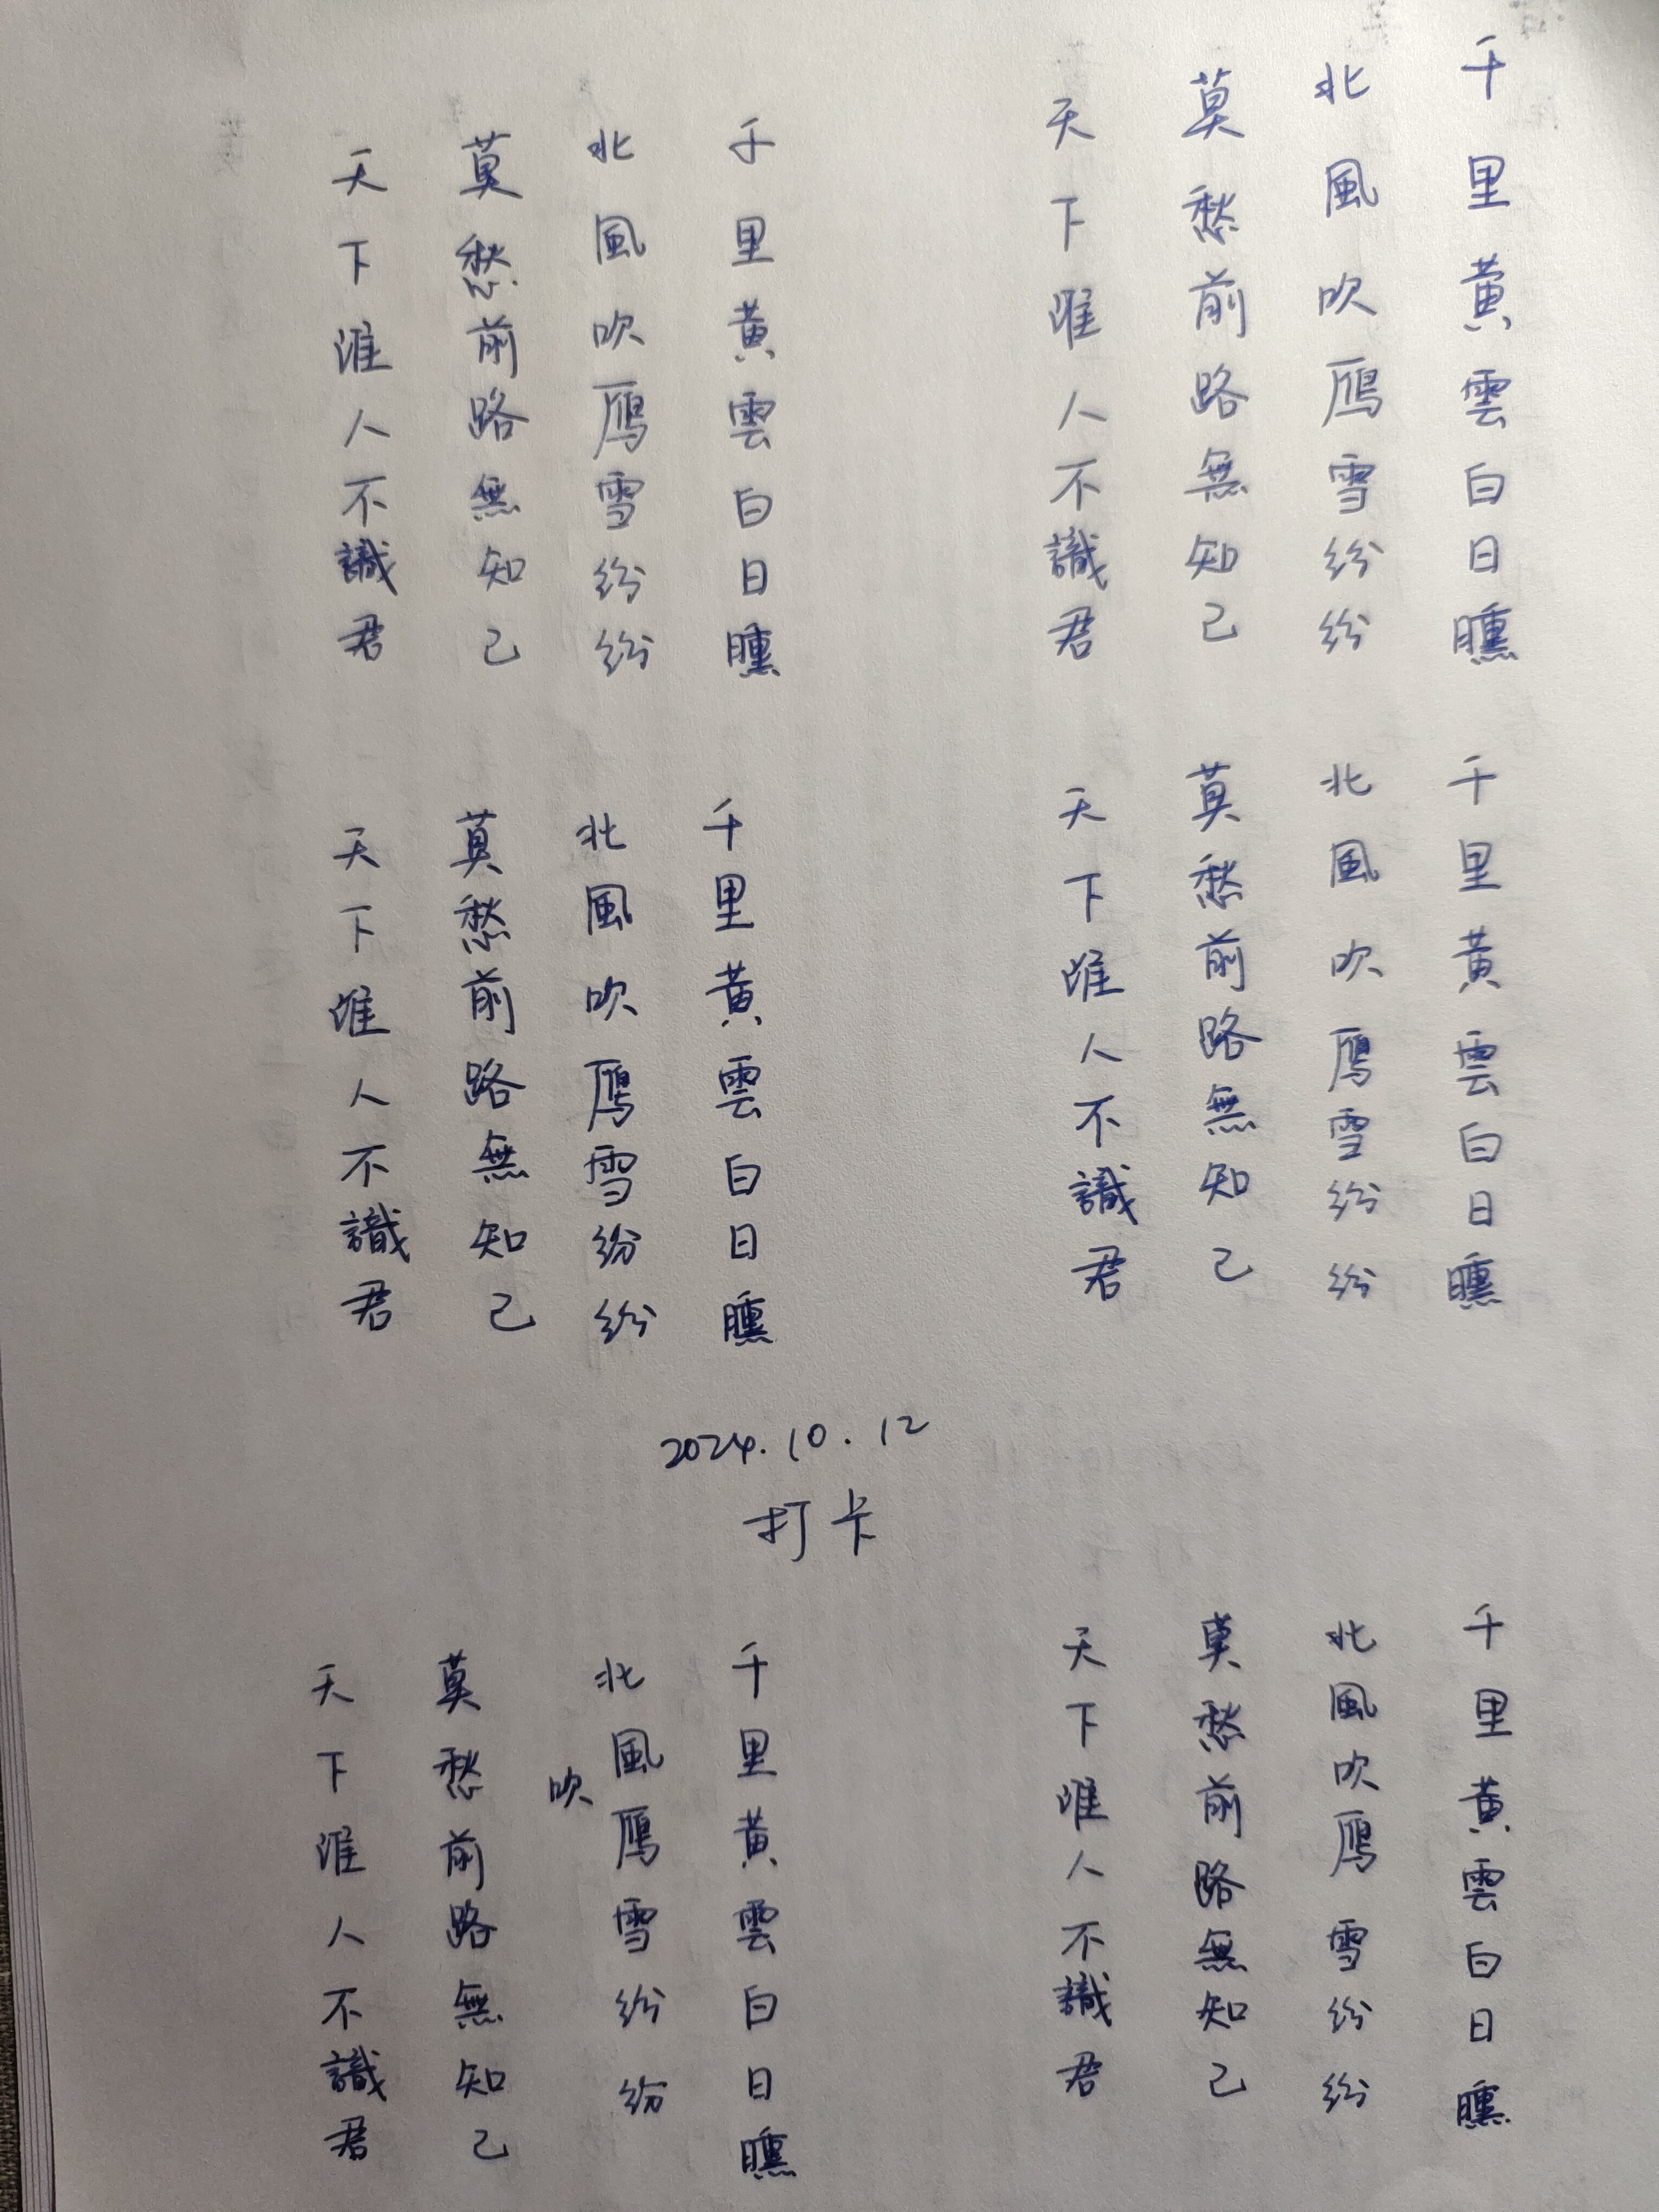 千里黄雲白日曛
北風吹鴈雪紛紛
莫愁前路無知己
天下谁人不識君
千里黄雲白日曛
北風吹鴈雪紛紛
莫愁前路無知己
天下谁人不識君
千里黄雲白日曛
北風吹鴈雪紛紛
莫愁前路無知己
天下谁人不識君
千里黄雲白日曛
北風吹鴈雪紛紛
莫愁前路無知己
天下谁人不識君
2024.10.12
打卡
千里黄雲白日曛
北風吹鴈雪紛紛
莫愁前路無知己
天下谁人不識君
千里黄雲白日曛
北風吹鴈雪紛紛
莫愁前路無知己
天下谁人不識君